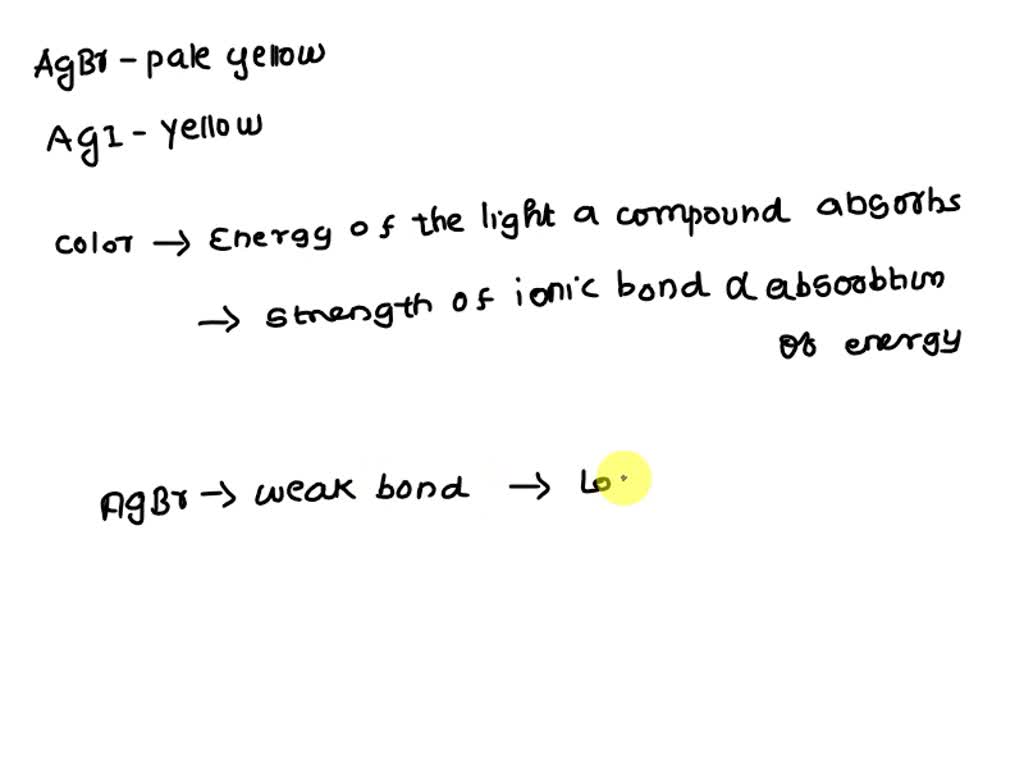 AgBr - pale yellow
AgI - yellow
color → Energy of the light a compound absorbs
→ strength of ionic bond α absorbtion
of energy
AgBr → weak bond → Lo